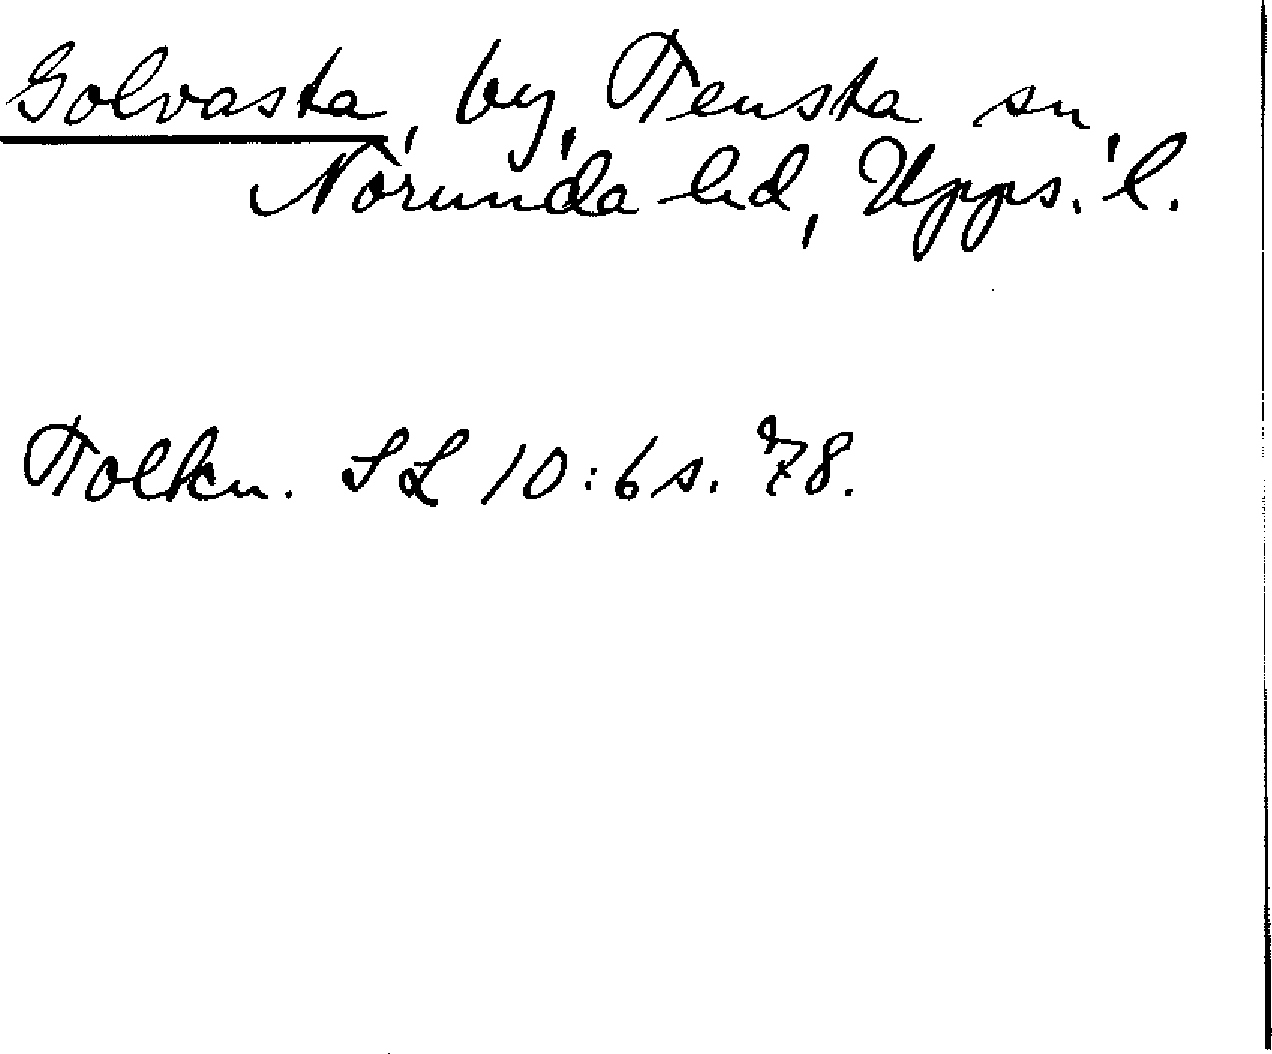 Golvasta, by, Tensta sn,
Norunda hd, Upps. l.
Tolkn. SL 10:6 s. 78.